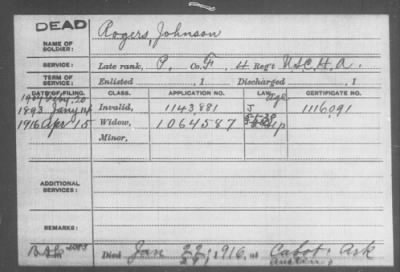 DEAD
NAME OF SOLDIER: Rogers, Johnson
SERVICE: Late rank, P, Co. F, 4 Regt U.S.C.H.A.
TERM OF SERVICE: Enlisted , 1 Discharged , 1
DATE OF FILING. CLASS. APPLICATION NO. LAW. CERTIFICATE NO.
age
1893 Jany 14 Invalid, 1143,881 J 1116,091
1916 Apr 15 Widow, 1064587
Minor,
ADDITIONAL SERVICES:
REMARKS:
Died Jan 22, 1916, at Cabot, Ark
Austin